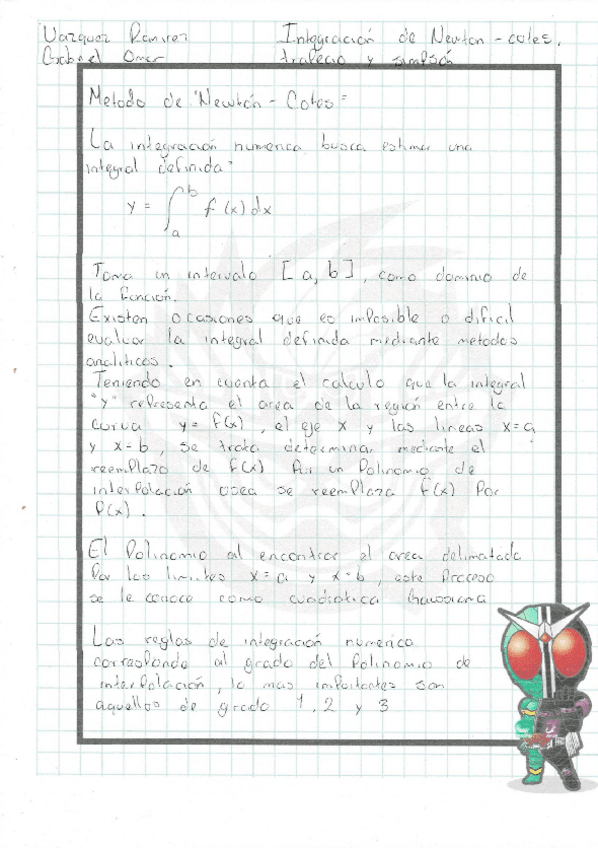 Vazquez Ramirez
Gabriel Omar
Integración de Newton-cotes,
trapecio y simpsón
Metodo de Newtón - Cotes=
La integración numerica busca estimar una
integral definida:
y = ∫ₐᵇ f(x) dx
Toma un intervalo [a, b], como dominio de
la función.
Existen ocasiones que es imposible o dificil
evaluar la integral definida mediante metodos
analiticos.
Teniendo en cuenta el calculo que la integral
"y" representa el area de la región entre la
curva y= f(x), el eje x y las lineas x=a
y x=b, se trata determinar mediante el
reemplazo de f(x) Por un Polinomio de
interpolación osea se reemplaza f(x) Por
P(x).
El Polinomio al encontrar el area delimatada
Por los limites x=a y x=b, este Proceso
se le conoce como cuadratica Gaussiana
Las reglas de integración numerica
corresponde al grado del Polinomio de
interpolación, lo mas importantes son
aquellos de grado 1, 2 y 3